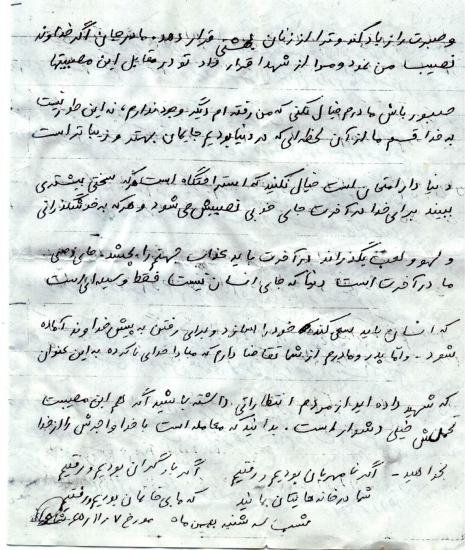 و صبرت را زیاد کند و ترا از زنان بهشتی قرار دهد. مادر جان اگر خداوند
نصیب من نمود و مرا از شهدا قرار داد تو در مقابل این مصیبتها
صبور باش مادرم خیال نکنی که من رفته ام دیگر وجود ندارم، نه این طور نیست
به خدا قسم ما از آن لحظه ای که در دنیا بودیم جایمان بهتر و زیباتر است
دنیا دار امتحان است خیال نکنید که استراحتگاه است هرکه سختی بیشتری
ببیند برای خدا در آخرت جای خوبی نصیبش می شود و هرکه به خوشگذرانی
و لهو و لعب بگذراند در آخرت باید عذاب جهنم را بچشد. جای اصلی
ما در آخرت است دنیا که جای انسان نیست فقط وسیله ای است
که انسان باید سعی کند خود را بسازد و برای رفتن به پیش خداوند آماده
شود. و اما پدر و مادرم از شما تقاضا دارم که مبادا خدای ناکرده به این عنوان
که شهید داده اید از مردم انتظاراتی داشته باشید اگر هم این مصیبت
تحملش خیلی دشوار است. بدانید که معامله است با خدا و اجرش را از خدا
بخواهید - اگر نامهربان بودیم و رفتیم اگر بار گران بودیم و رفتیم
شما در خانه هایتان بمانید که ما بی خانمان بودیم و رفتیم
شب سه شنبه بهمن ماه مورخ ۷ / ۱۱ / ۶۵